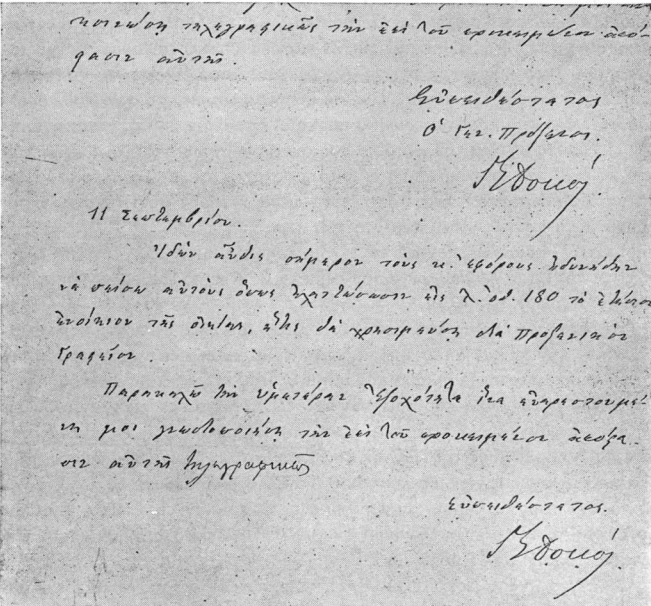 κοινώσῃ τηλεγραφικῶς τὴν ἐπὶ τοῦ προκειμένου ἀπό-
φασιν αὑτῆς.
Εὐπειθέστατος
Ὁ Γεν. Πρόξενος.
11 Σεπτεμβρίου.
Ἰδὼν αὖθις σήμερον τοὺς κ. ἐφόρους ἠδυνήθην
νὰ πείσω αὐτοὺς ὅπως ἐλαττώσωσιν εἰς λ. ὀθ. 180 τὸ ἐτήσιον
ἐνοίκιον τῆς οἰκίας, ἥτις θὰ χρησιμεύσῃ διὰ Προξενικὸν
Γραφεῖον.
Παρακαλῶ τὴν ὑμετέραν Ἐξοχότητα ἵνα εὐαρεστουμέ-
νη μοι γνωστοποιήσῃ τὴν ἐπὶ τοῦ προκειμένου ἀπόφα-
σιν αὑτῆς τηλεγραφικῶς
Εὐπειθέστατος.